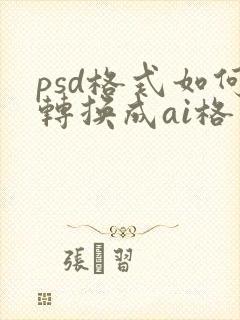 psd格式如何
轉換成ai格
張習